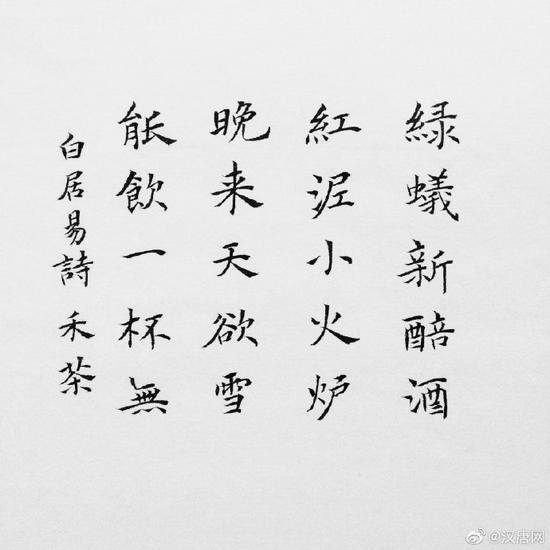 綠蟻新醅酒
紅泥小火炉
晚来天欲雪
能飲一杯無
白居易詩 禾茶
@汉唐网